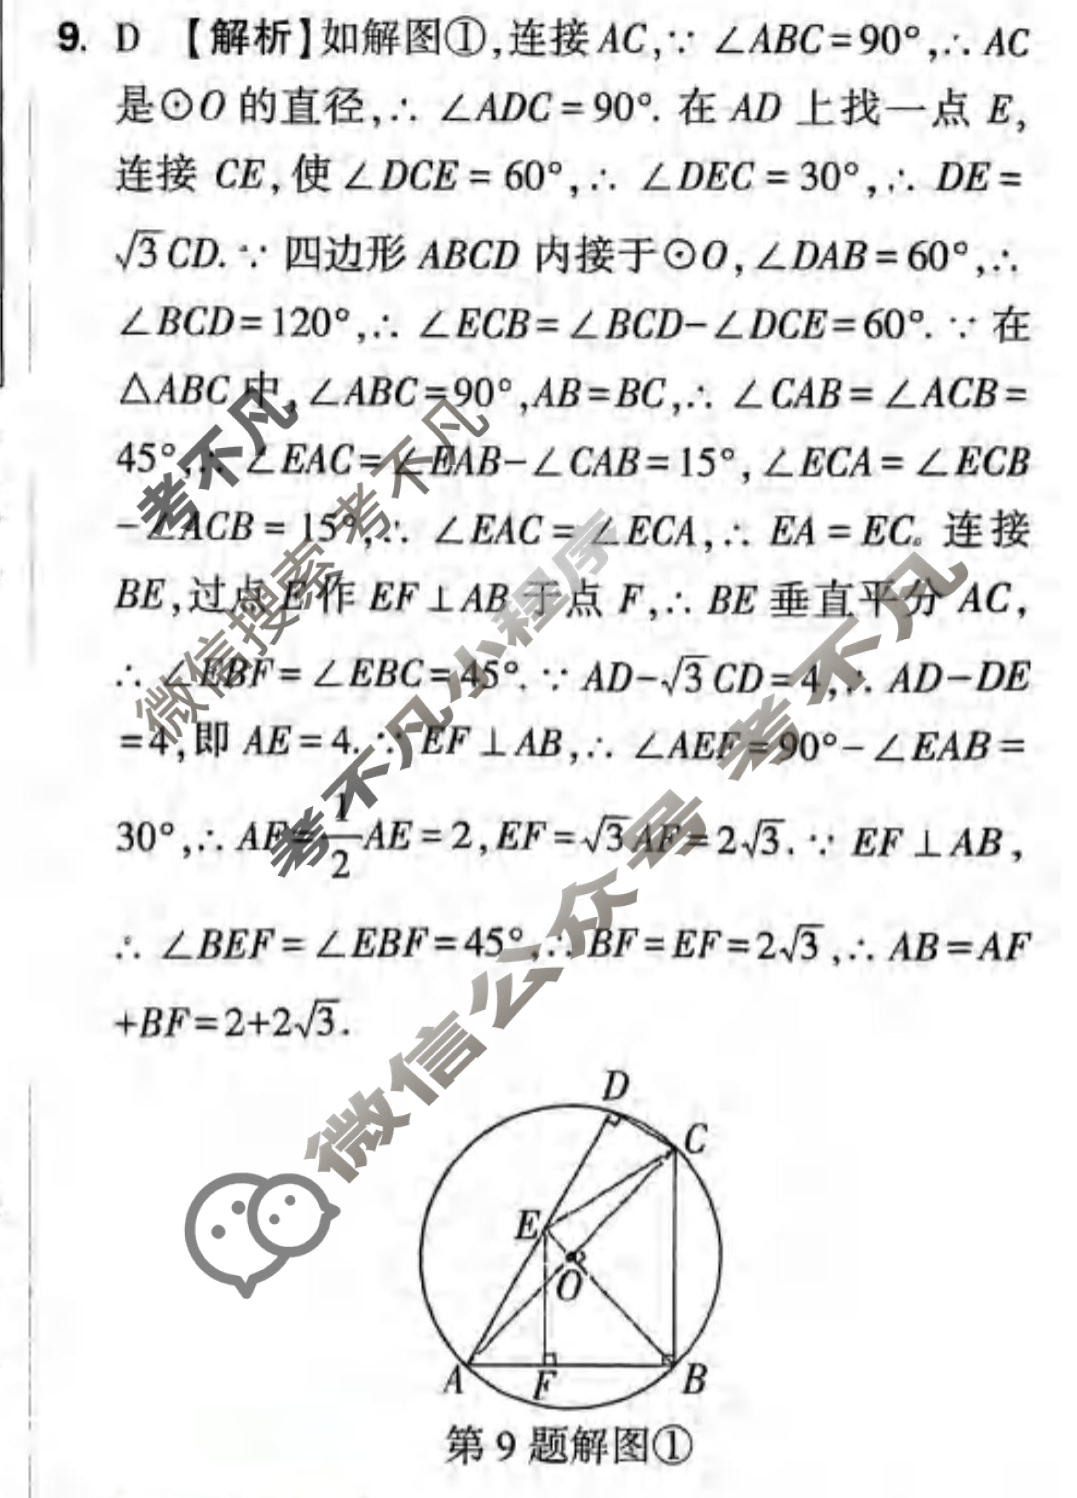 9. D 【解析】如解图①,连接AC,∵ ∠ABC=90°,∴ AC
是⊙O的直径,∴ ∠ADC=90°. 在AD上找一点E,
连接CE,使∠DCE=60°,∴ ∠DEC=30°,∴ DE=
√3CD. ∵ 四边形ABCD内接于⊙O,∠DAB=60°,∴
∠BCD=120°,∴ ∠ECB=∠BCD-∠DCE=60°. ∵ 在
△ABC中,∠ABC=90°,AB=BC,∴ ∠CAB=∠ACB=
45°,∴ ∠EAC=∠EAB-∠CAB=15°,∠ECA=∠ECB
-∠ACB=15°,∴ ∠EAC=∠ECA,∴ EA=EC。连接
BE,过点E作EF⊥AB于点F,∴ BE垂直平分AC,
∴ ∠EBF=∠EBC=45°. ∵ AD-√3CD=4,∴ AD-DE
=4,即AE=4. ∵ EF⊥AB,∴ ∠AEF=90°-∠EAB=
30°,∴ AF=1/2AE=2,EF=√3AF=2√3. ∵ EF⊥AB,
∴ ∠BEF=∠EBF=45°,∴ BF=EF=2√3,∴ AB=AF
+BF=2+2√3.
D
C
E
O
A
F
B
第9题解图①
考不凡
微信搜索考不凡
考不凡小程序
微信公众号 考不凡